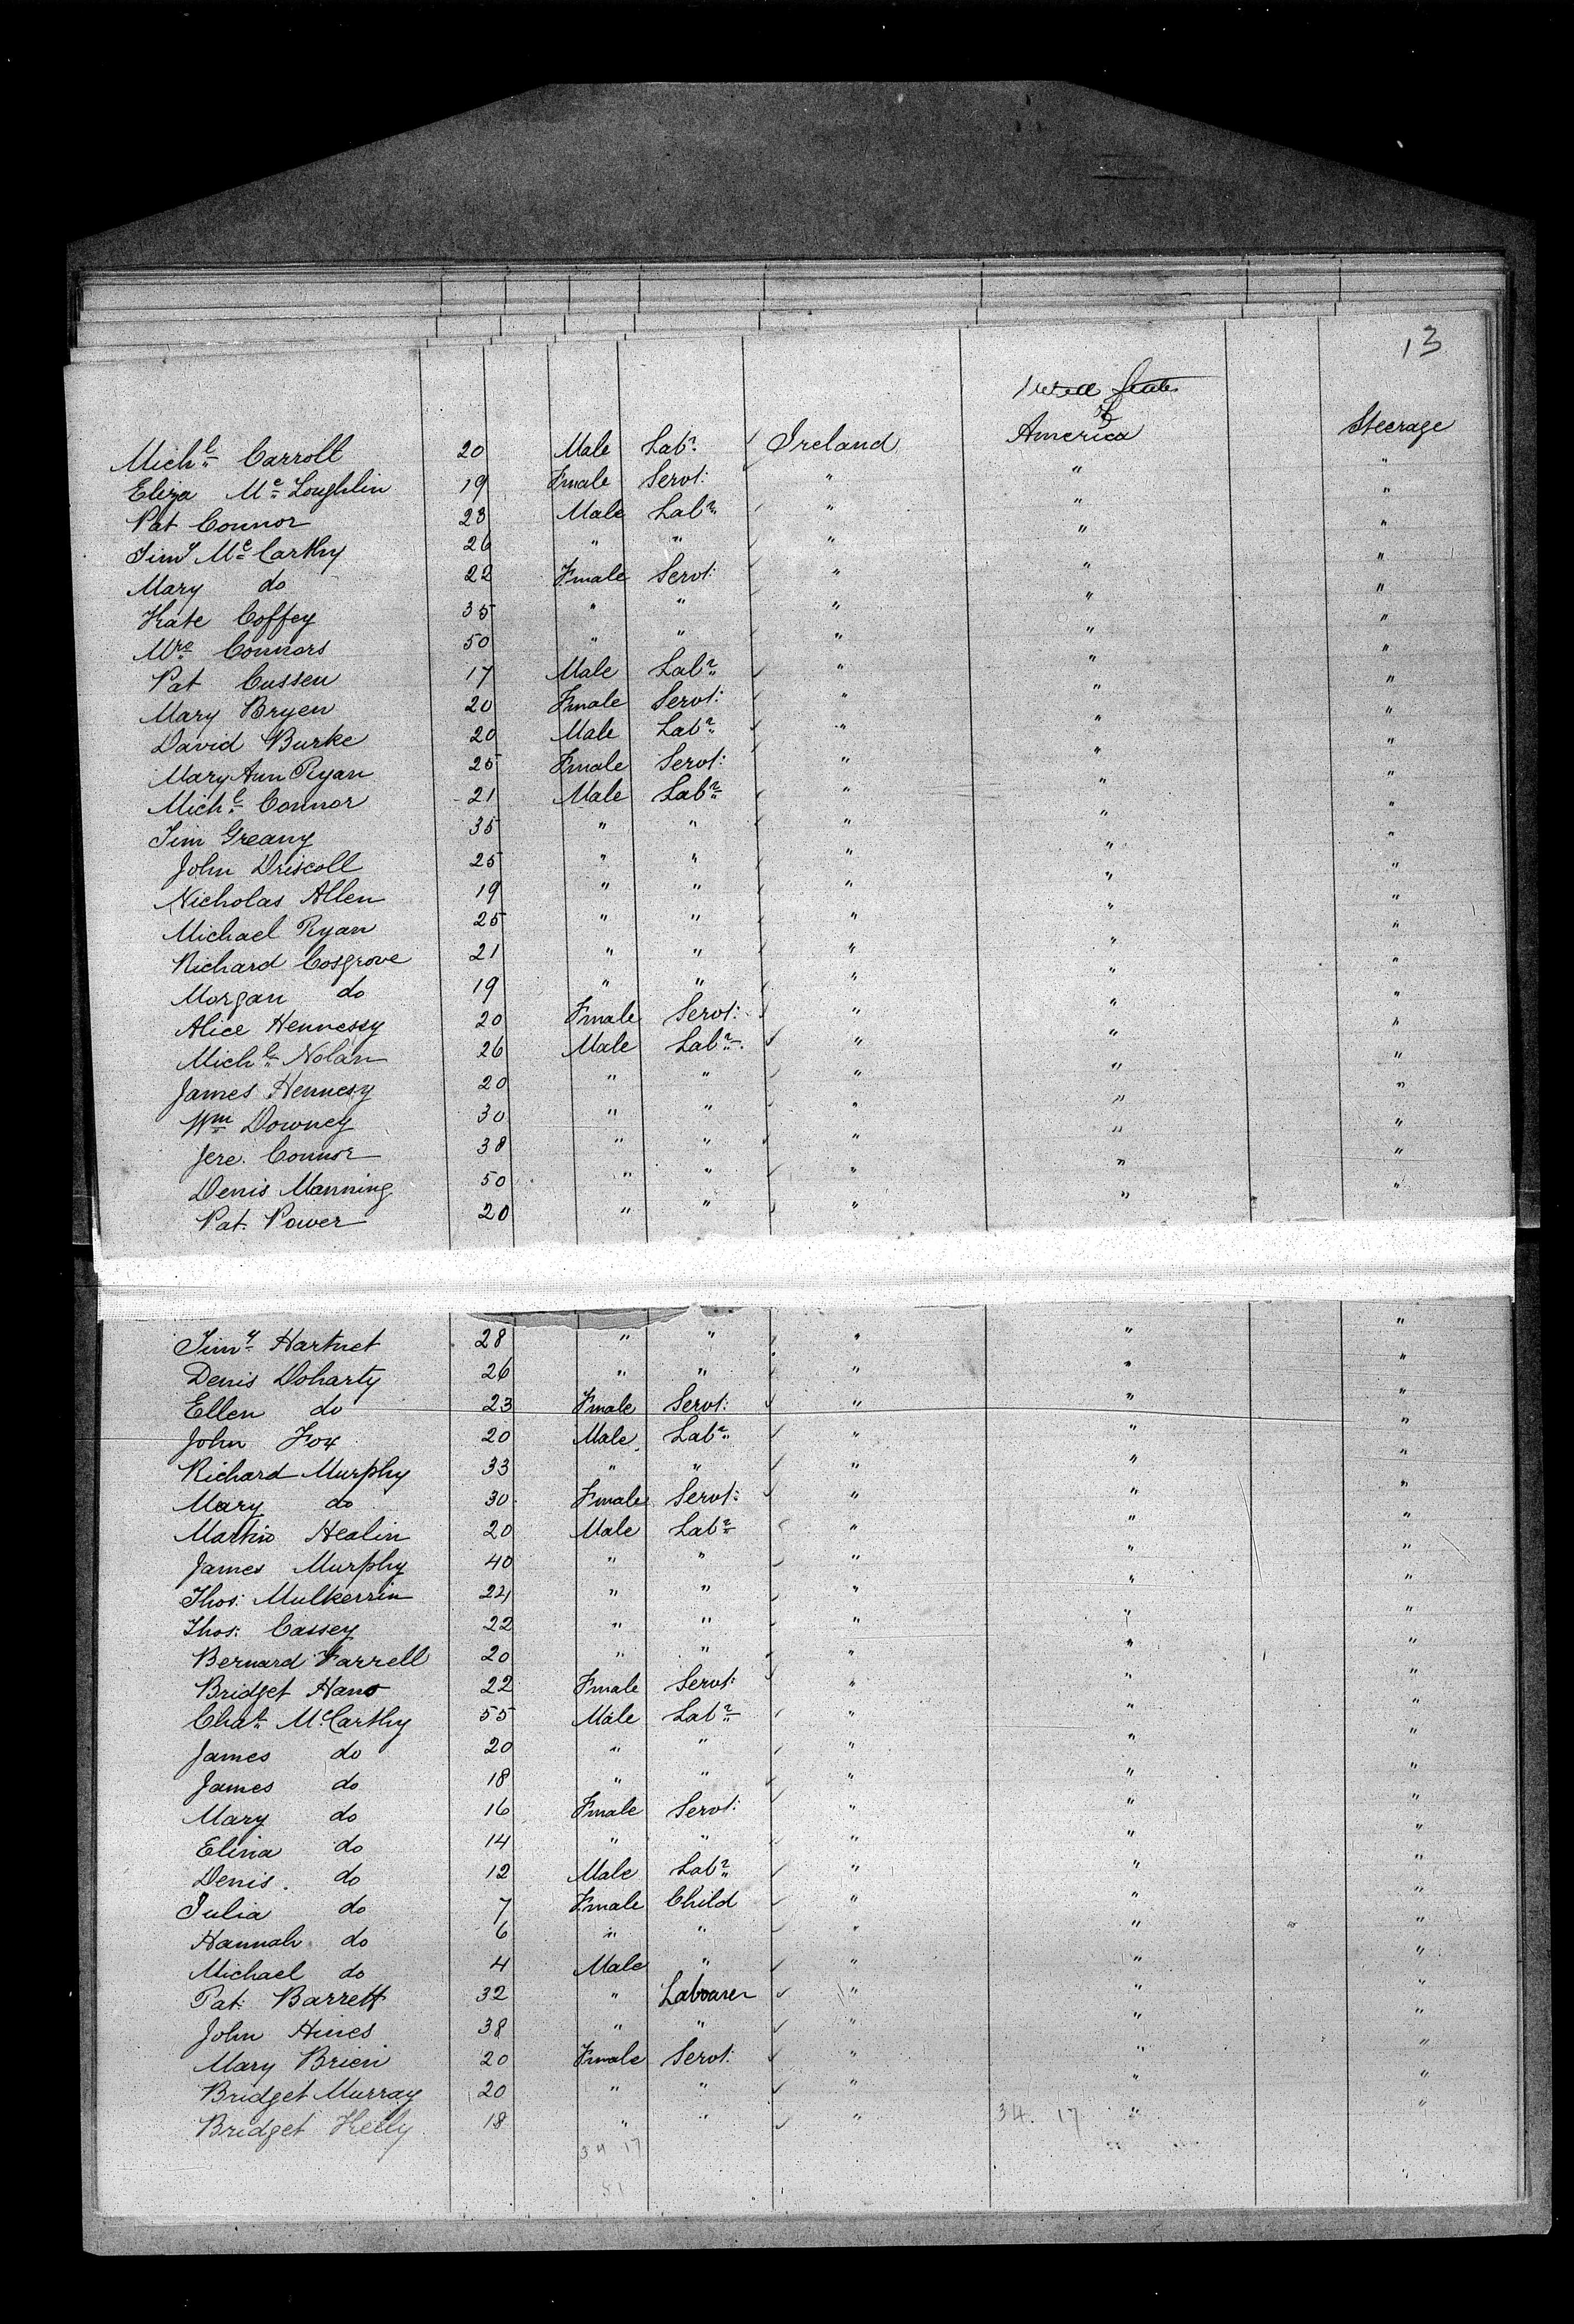 13
United States
of
Mich.l Carroll 20 Male Lab.r Ireland America Steerage
Eliza Mc Loughlin 19 Female Servt: " " "
Pat Connor 23 Male Lab.r " " "
Timy Mc Carthy 26 " " " " "
Mary do 22 Female Servt: " " "
Kate Coffey 35 " " " " "
Mrs Connors 50 " " " " "
Pat Cussen 17 Male Lab.r " " "
Mary Bryen 20 Female Servt: " " "
David Burke 20 Male Lab.r " " "
Mary Ann Ryan 25 Female Servt: " " "
Mich.l Connor 21 Male Lab.r " " "
Tim Greany 35 " " " " "
John Driscoll 25 " " " " "
Nicholas Allen 19 " " " " "
Michael Ryan 25 " " " " "
Richard Cosgrove 21 " " " " "
Morgan do 19 " " " " "
Alice Hennessy 20 Female Servt: " " "
Mich.l Nolan 26 Male Lab.r " " "
James Hennesy 20 " " " " "
Wm Downey 30 " " " " "
Jere. Connor 38 " " " " "
Denis Manning 50 " " " " "
Pat. Power 20 " " " " "
Timy Hartnet 28 " " " " "
Denis Doharty 26 " " " " "
Ellen do 23 Female Servt: " " "
John Fox 20 Male Lab.r " " "
Richard Murphy 33 " " " " "
Mary do 30 Female Servt: " " "
Martin Healin 20 Male Lab.r " " "
James Murphy 40 " " " " "
Thos: Mulkerrin 24 " " " " "
Thos: Cassey 22 " " " " "
Bernard Farrell 20 " " " " "
Bridget Hano 22 Female Servt: " " "
Chas McCarthy 55 Male Lab.r " " "
James do 20 " " " " "
James do 18 " " " " "
Mary do 16 Female Servt: " " "
Elina do 14 " " " " "
Denis. do 12 Male Lab.r " " "
Julia do 7 Female Child " " "
Hannah do 6 " " " " "
Michael do 4 Male " " " "
Pat: Barrett 32 " Labourer " " "
John Hines 38 " " " " "
Mary Brien 20 Female Servt: " " "
Bridget Murray 20 " " " " "
Bridget Kelly 18 " " " 34. 17 " "
34 17
51